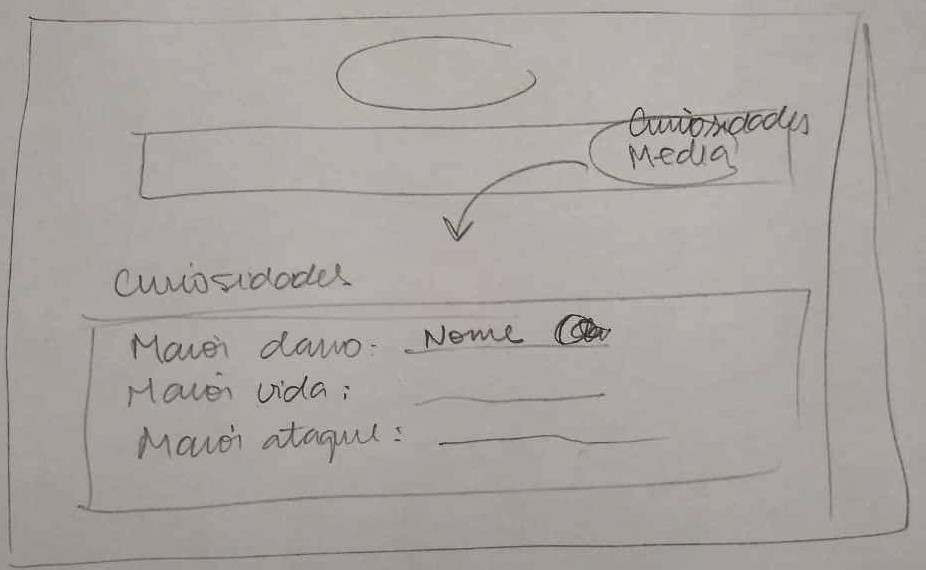 Curiosidades
Media
Curiosidades
Maior dano: Nome
Maior vida:
Maior ataque: